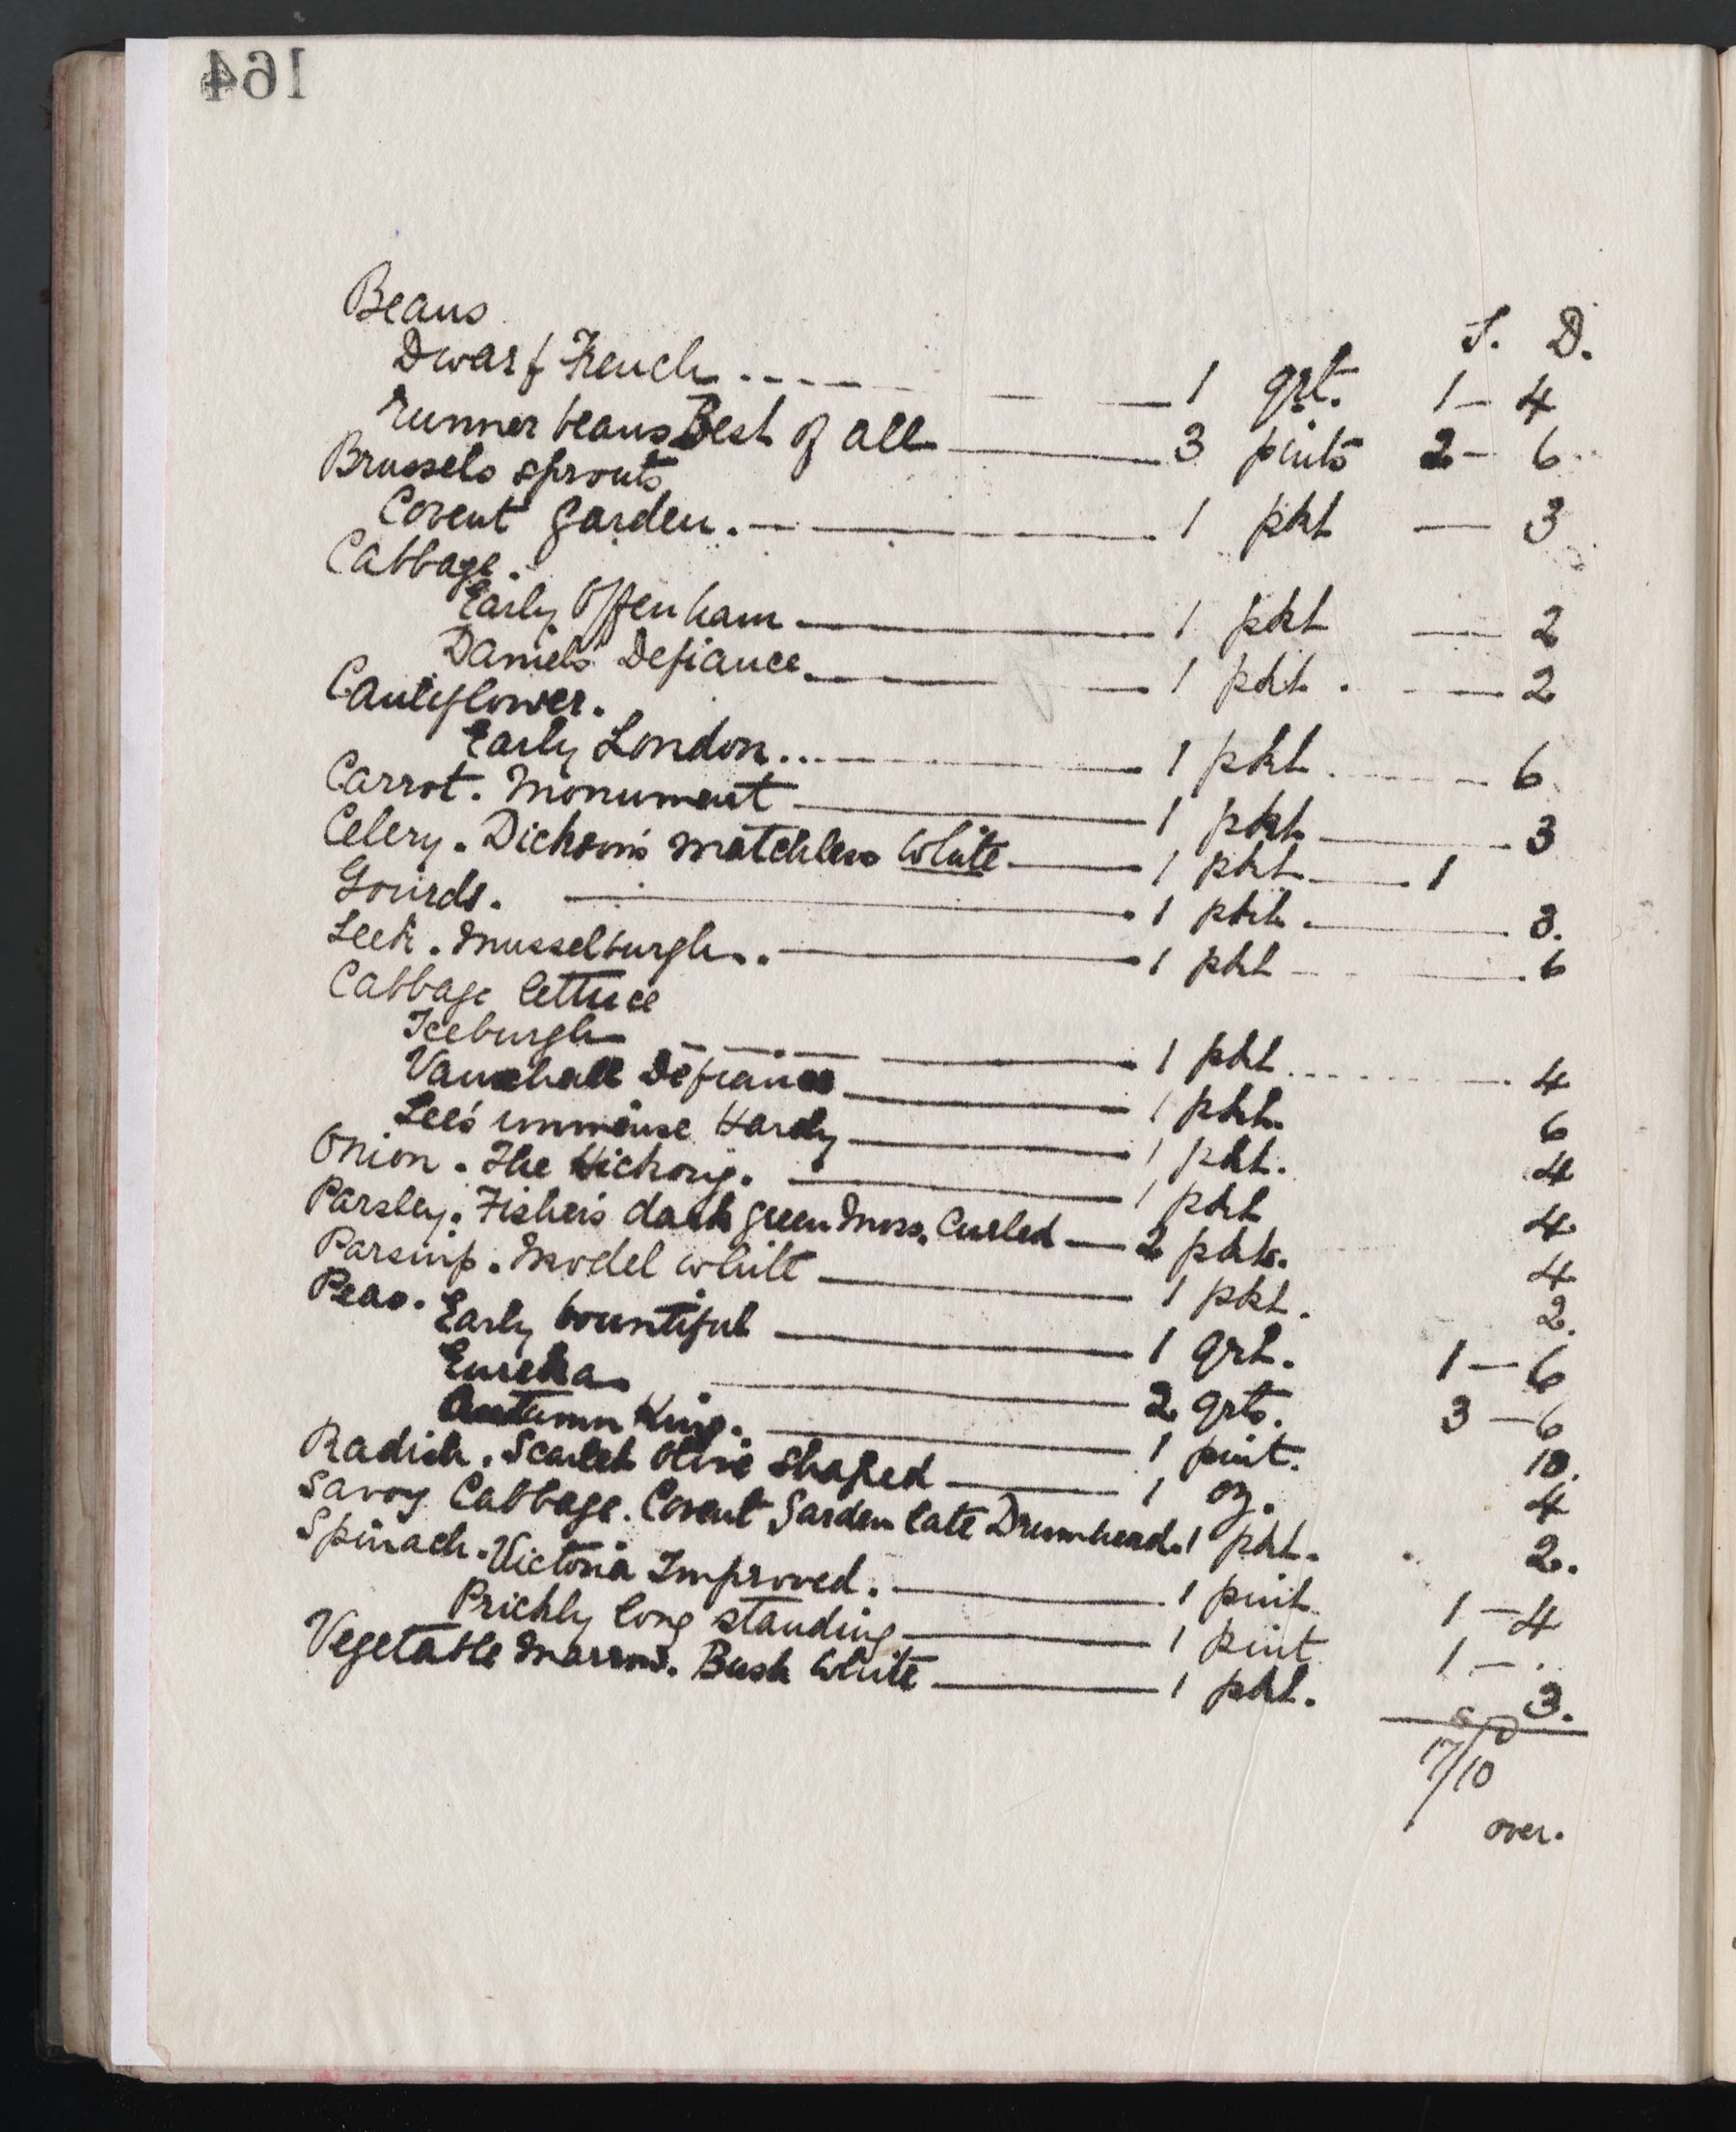 164
Beans
S. D.
Dwarf French ..---- — — 1 qrt. 1 — 4
Runner beans Best of all — 3 pints 2 — 6
Brussels sprouts
Covent Garden. — 1 pkt — 3
Cabbage.
Early Offenham — 1 pkt — 2
Daniels Defiance. — 1 pkt . — 2
Cauliflower.
Early London... — 1 pkt. — 6
Carrot. Monument — 1 pkt — 3
Celery. Dickson's matchless White — 1 pkt — 1
Gourds. — 1 pkt. — 3.
Leek. Musselburgh. — 1 pkt — 6
Cabbage lettuce
Iceburgh — 1 pkt — 4
Vauxhall Defiance — 1 pkt. 6
Lee's immense Hardy — 1 pkt. 4
Onion. The Hickory. — 1 pkt 4
Parsley. Fisher's dark green Moss Curled — 2 pkts. 4
Parsnip. Model white — 1 pkt. 2.
Peas. Early bountiful — 1 qrt. 1 — 6
Eureka — 2 qrts. 3 — 6
Autumn King. — 1 pint. 10.
Radish. Scarlet Olive Shaped — 1 oz. 4
Savoy Cabbage. Covent Garden late Drumhead. 1 pkt. 2.
Spinach. Victoria Improved. — 1 pint 1 — 4
Prickly long standing — 1 pint 1 — .
Vegetable Marrow. Bush White — 1 pkt. 3.
S/D
17/10
over.